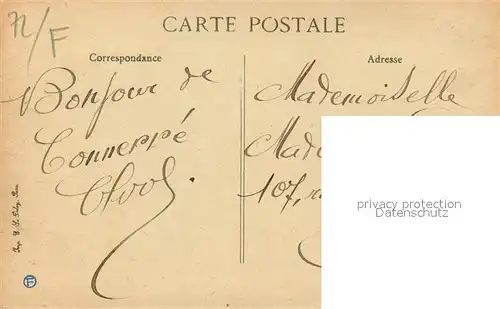 72/F
CARTE POSTALE
Correspondance
Adresse
Bonjour de
Connerré
Mademoiselle
107,
privacy protection
Datenschutz